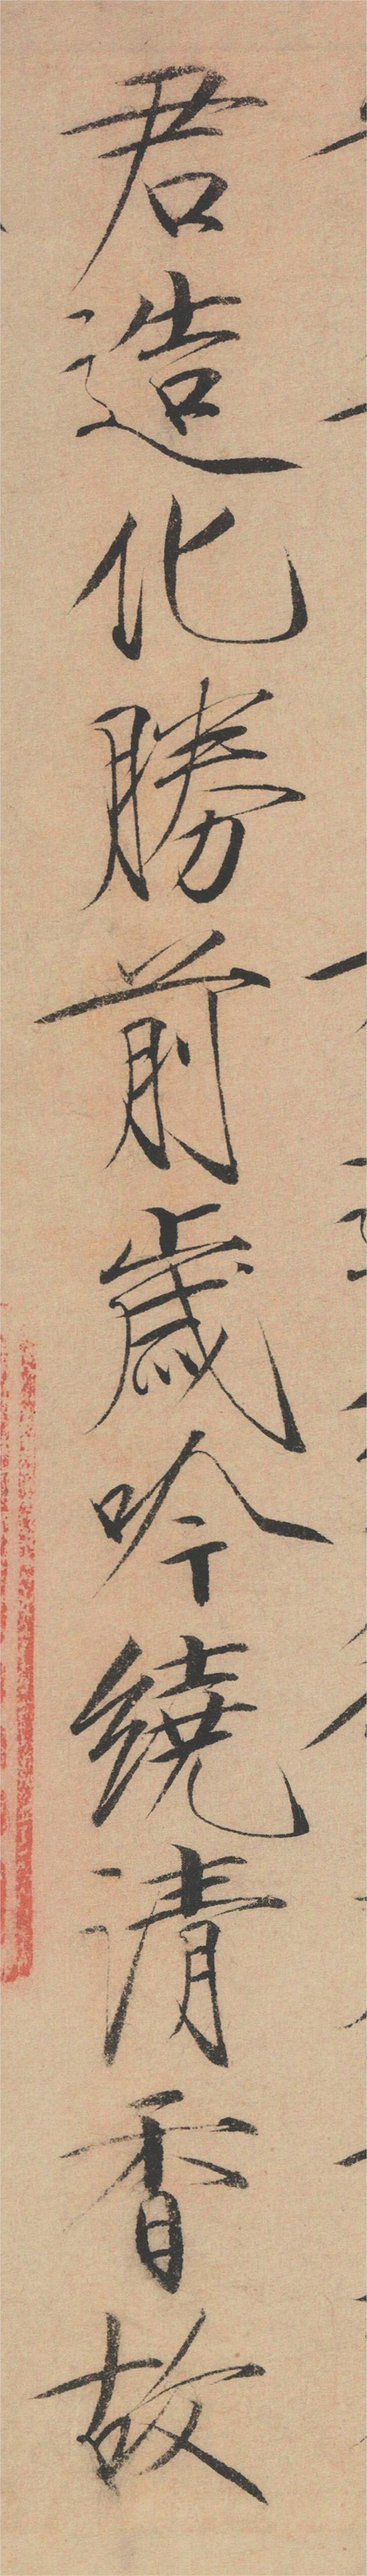 君造化勝前歲吟繞清香故